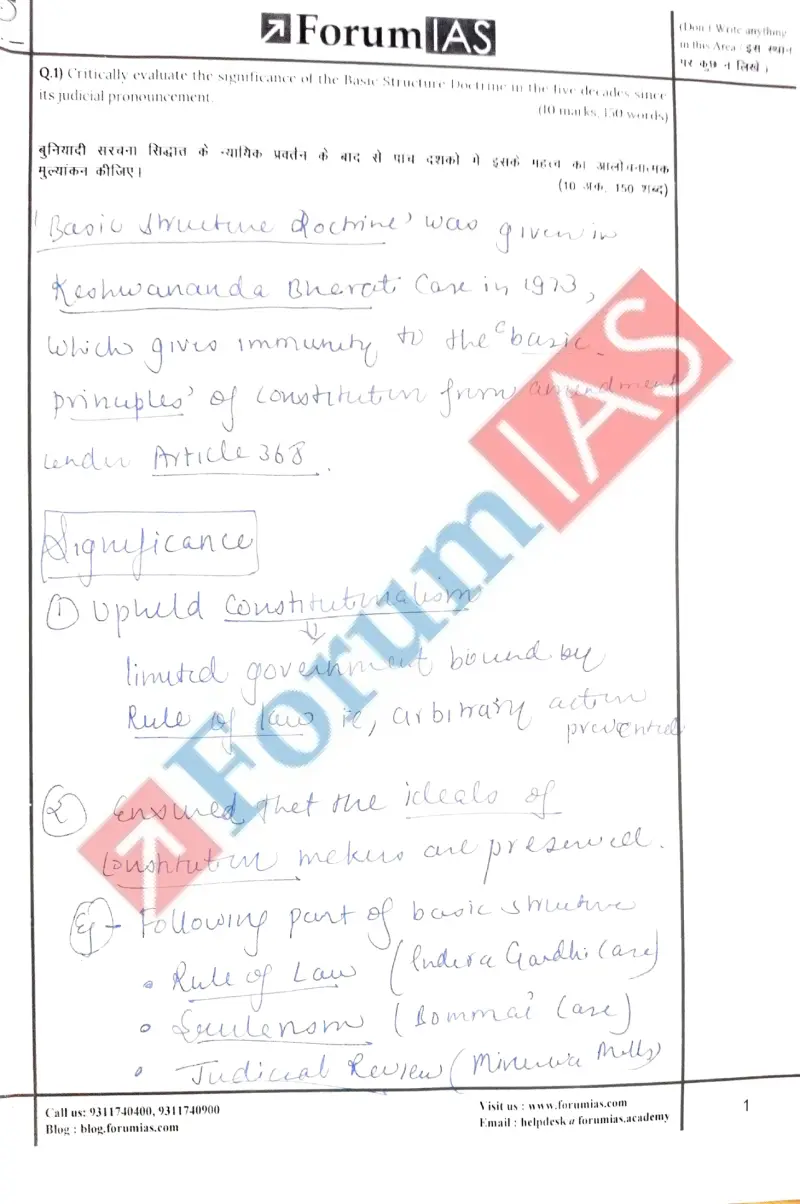 Forum IAS
(Don't Write anything
in this Area : इस स्थान
पर कुछ न लिखें ।
Q.1) Critically evaluate the significance of the Basic Structure Doctrine in the five decades since
its judicial pronouncement.
(10 marks, 150 words)
बुनियादी सरचना सिद्धात के न्यायिक प्रवर्तन के बाद से पाच दशको मे इसके महत्व का आलोचनात्मक
मुल्यांकन कीजिए।
(10 अक, 150 शब्द)
'Basic Structure Doctrine' was given in
Keshwananda Bharati Case in 1973,
which gives immunity to the 'basic
principles' of constitution from amendment
under Article 368.
Significance
① Upheld Constitutionalism
⇓
limited government bound by
Rule of law ie, arbitrary action
prevented
② Ensured that the ideals of
Constitution makers are preserved.
Eg - Following part of basic structure
• Rule of Law (Indira Gandhi Case)
• Secularism (Bommai Case)
• Judicial Review (Minerva Mills)
ForumIAS
Call us: 9311740400, 9311740900
Blog : blog.forumias.com
Visit us : www.forumias.com
Email : helpdesk@forumias.academy
1